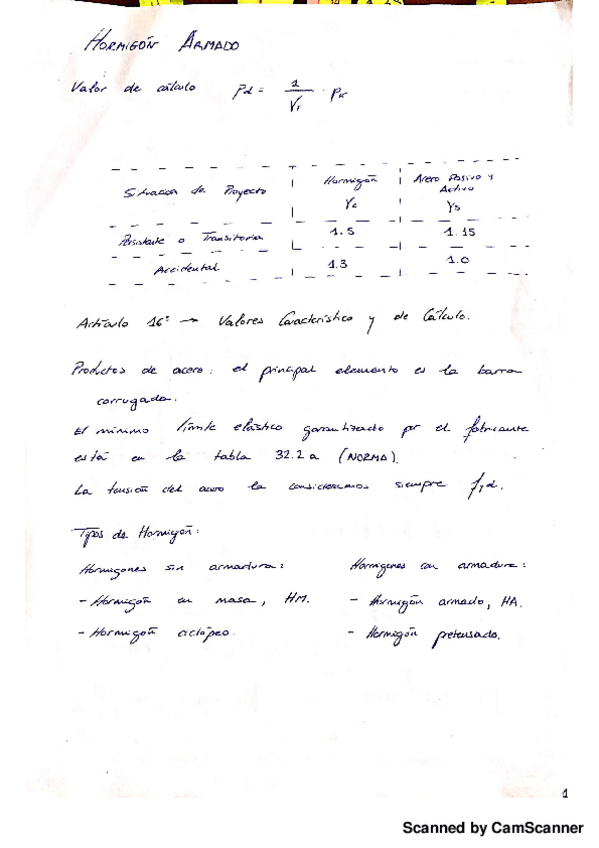 HORMIGÓN ARMADO
Valor de cálculo Pd = 1/γr · Pk
Situación de Proyecto | Hormigón γc | Acero Pasivo y Activo γs
Persistente o Transitoria | 1.5 | 1.15
Accidental | 1.3 | 1.0
Artículo 16º → Valores Característico y de Cálculo.
Productos de acero: el principal elemento es la barra
corrugada.
El mínimo límite elástico garantizado por el fabricante
está en la tabla 32.2a (NORMA).
La tensión del acero la consideremos siempre fyd.
Tipos de Hormigón:
Hormigones sin armadura:
- Hormigón en masa, HM.
- Hormigón ciclópeo.
Hormigones con armadura:
- Hormigón armado, HA.
- Hormigón pretensado.
1
Scanned by CamScanner